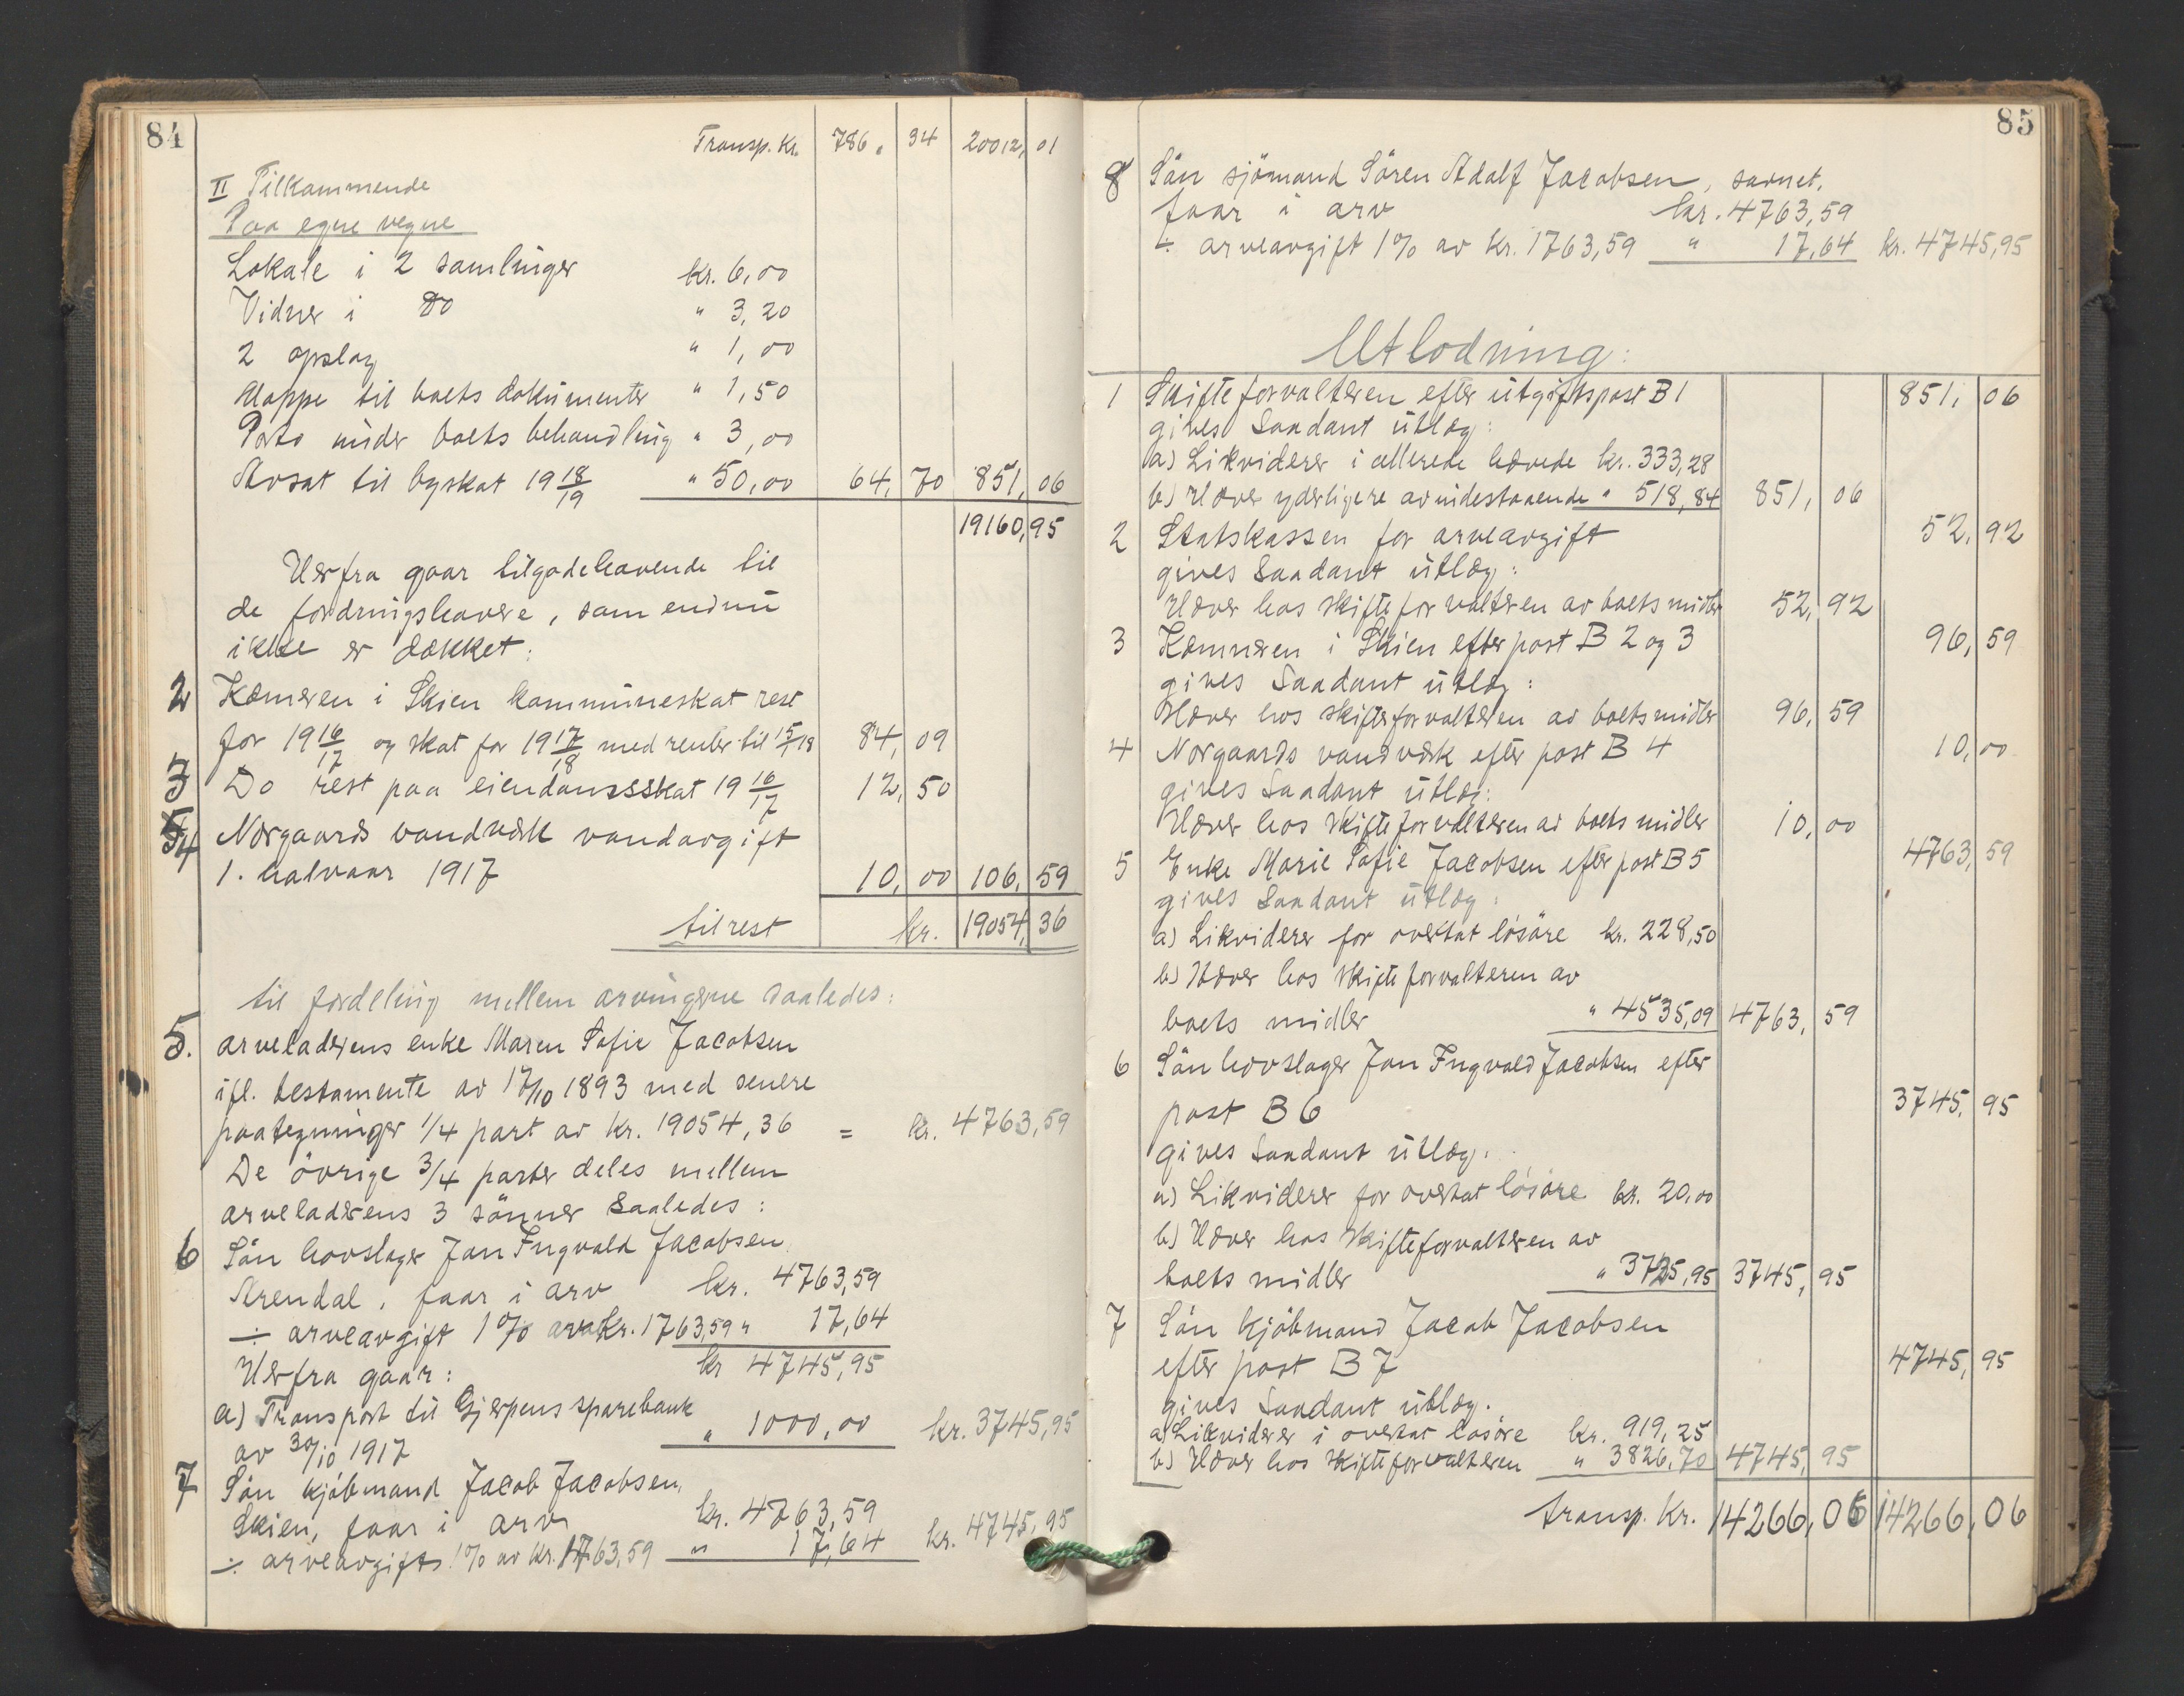 84
Transp. kr. 786, 34 20012, 01
II Tilkommende
Paa egne vegne
Lokale i 2 samlinger kr. 6,00
Vidner i Do " 3,20
2 opslag " 1,00
Mappe til boets dokumenter " 1,50
Porto under boets behandling " 3,00
Avsat til byskat 19 18/19 " 50,00 64, 70 851, 06
19160, 95
Herfra gaar tilgodehavende til
de fordringshavere, som endnu
ikke er dækket:
2 Kæmneren i Skien kommuneskat rest
for 19 16/17 og skat for 19 17/18 med renter til 15/7 18 84, 09
3 Do rest paa eiendomsskat 19 16/17 12, 50
4 Norgaards vandværk vandavgift
1. halvaar 1917 10, 00 106, 59
til rest kr. 19054, 36
til fordeling mellem arvingerne saaledes:
5. arveladerens enke Maren Sofie Jacobsen
ifl. testamente av 17/10 1893 med senere
paategninger 1/4 part av kr. 19054,36 = kr. 4763,59
De övrige 3/4 parter deles mellem
arveladerens 3 sönner saaledes:
6 Sön hovslager Jon Ingvald Jacobsen,
Arendal, faar i arv kr. 4763,59
÷ arveavgift 1% av kr. 1763,59 " 17,64
Herfra gaar: kr 4745,95
a) Transport til Gjerpens sparebank
av 30/10 1917 " 1000,00 kr. 3745,95
7 Sön kjöbmand Jacob Jacobsen,
Skien, faar i arv kr. 4763,59
÷ arveavgift 1% av kr. 1763,59 " 17,64 kr. 4745,95
85
8 Sön sjömand Sören Adolf Jacobsen, savnet,
faar i arv kr. 4763,59
÷ arveavgift 1% av kr. 1763,59 " 17,64 kr. 4745,95
Utlodning:
1 Skifteforvalteren efter utgiftspost B 1 851, 06
gives saadant utlæg:
a) Likviderer i allerede hævede kr. 333,28
b) Hæver yderligere av indestaaende " 518,84 851, 06
2 Statskassen for arveavgift 52, 92
gives saadant utlæg:
Hæver hos skifteforvalteren av boets midler 52, 92
3 Kæmneren i Skien efter post B 2 og 3 96, 59
gives saadant utlæg:
Hæver hos skifteforvalteren av boets midler 96, 59
4 Norgaards vandværk efter post B 4 10, 00
gives saadant utlæg:
Hæver hos skifteforvalteren av boets midler 10, 00
5 Enke Marie Sofie Jacobsen efter post B 5 4763, 59
gives saadant utlæg:
a) Likviderer for overtat lösöre kr. 228,50
b) Hæver hos skifteforvalteren av
boets midler " 4535,09 4763, 59
6 Sön hovslager Jon Ingvald Jacobsen efter
post B 6 3745, 95
gives saadant utlæg:
a) Likviderer for overtat lösöre kr. 20,00
b) Hæver hos skifteforvalteren av
boets midler " 3725,95 3745, 95
7 Sön kjöbmand Jacob Jacobsen
efter post B 7 4745, 95
gives saadant utlæg.
a) Likviderer i overtat lösöre kr. 919,25
b) Hæver hos skifteforvalteren " 3826,70 4745, 95
transp. kr. 14266, 06 14266, 06